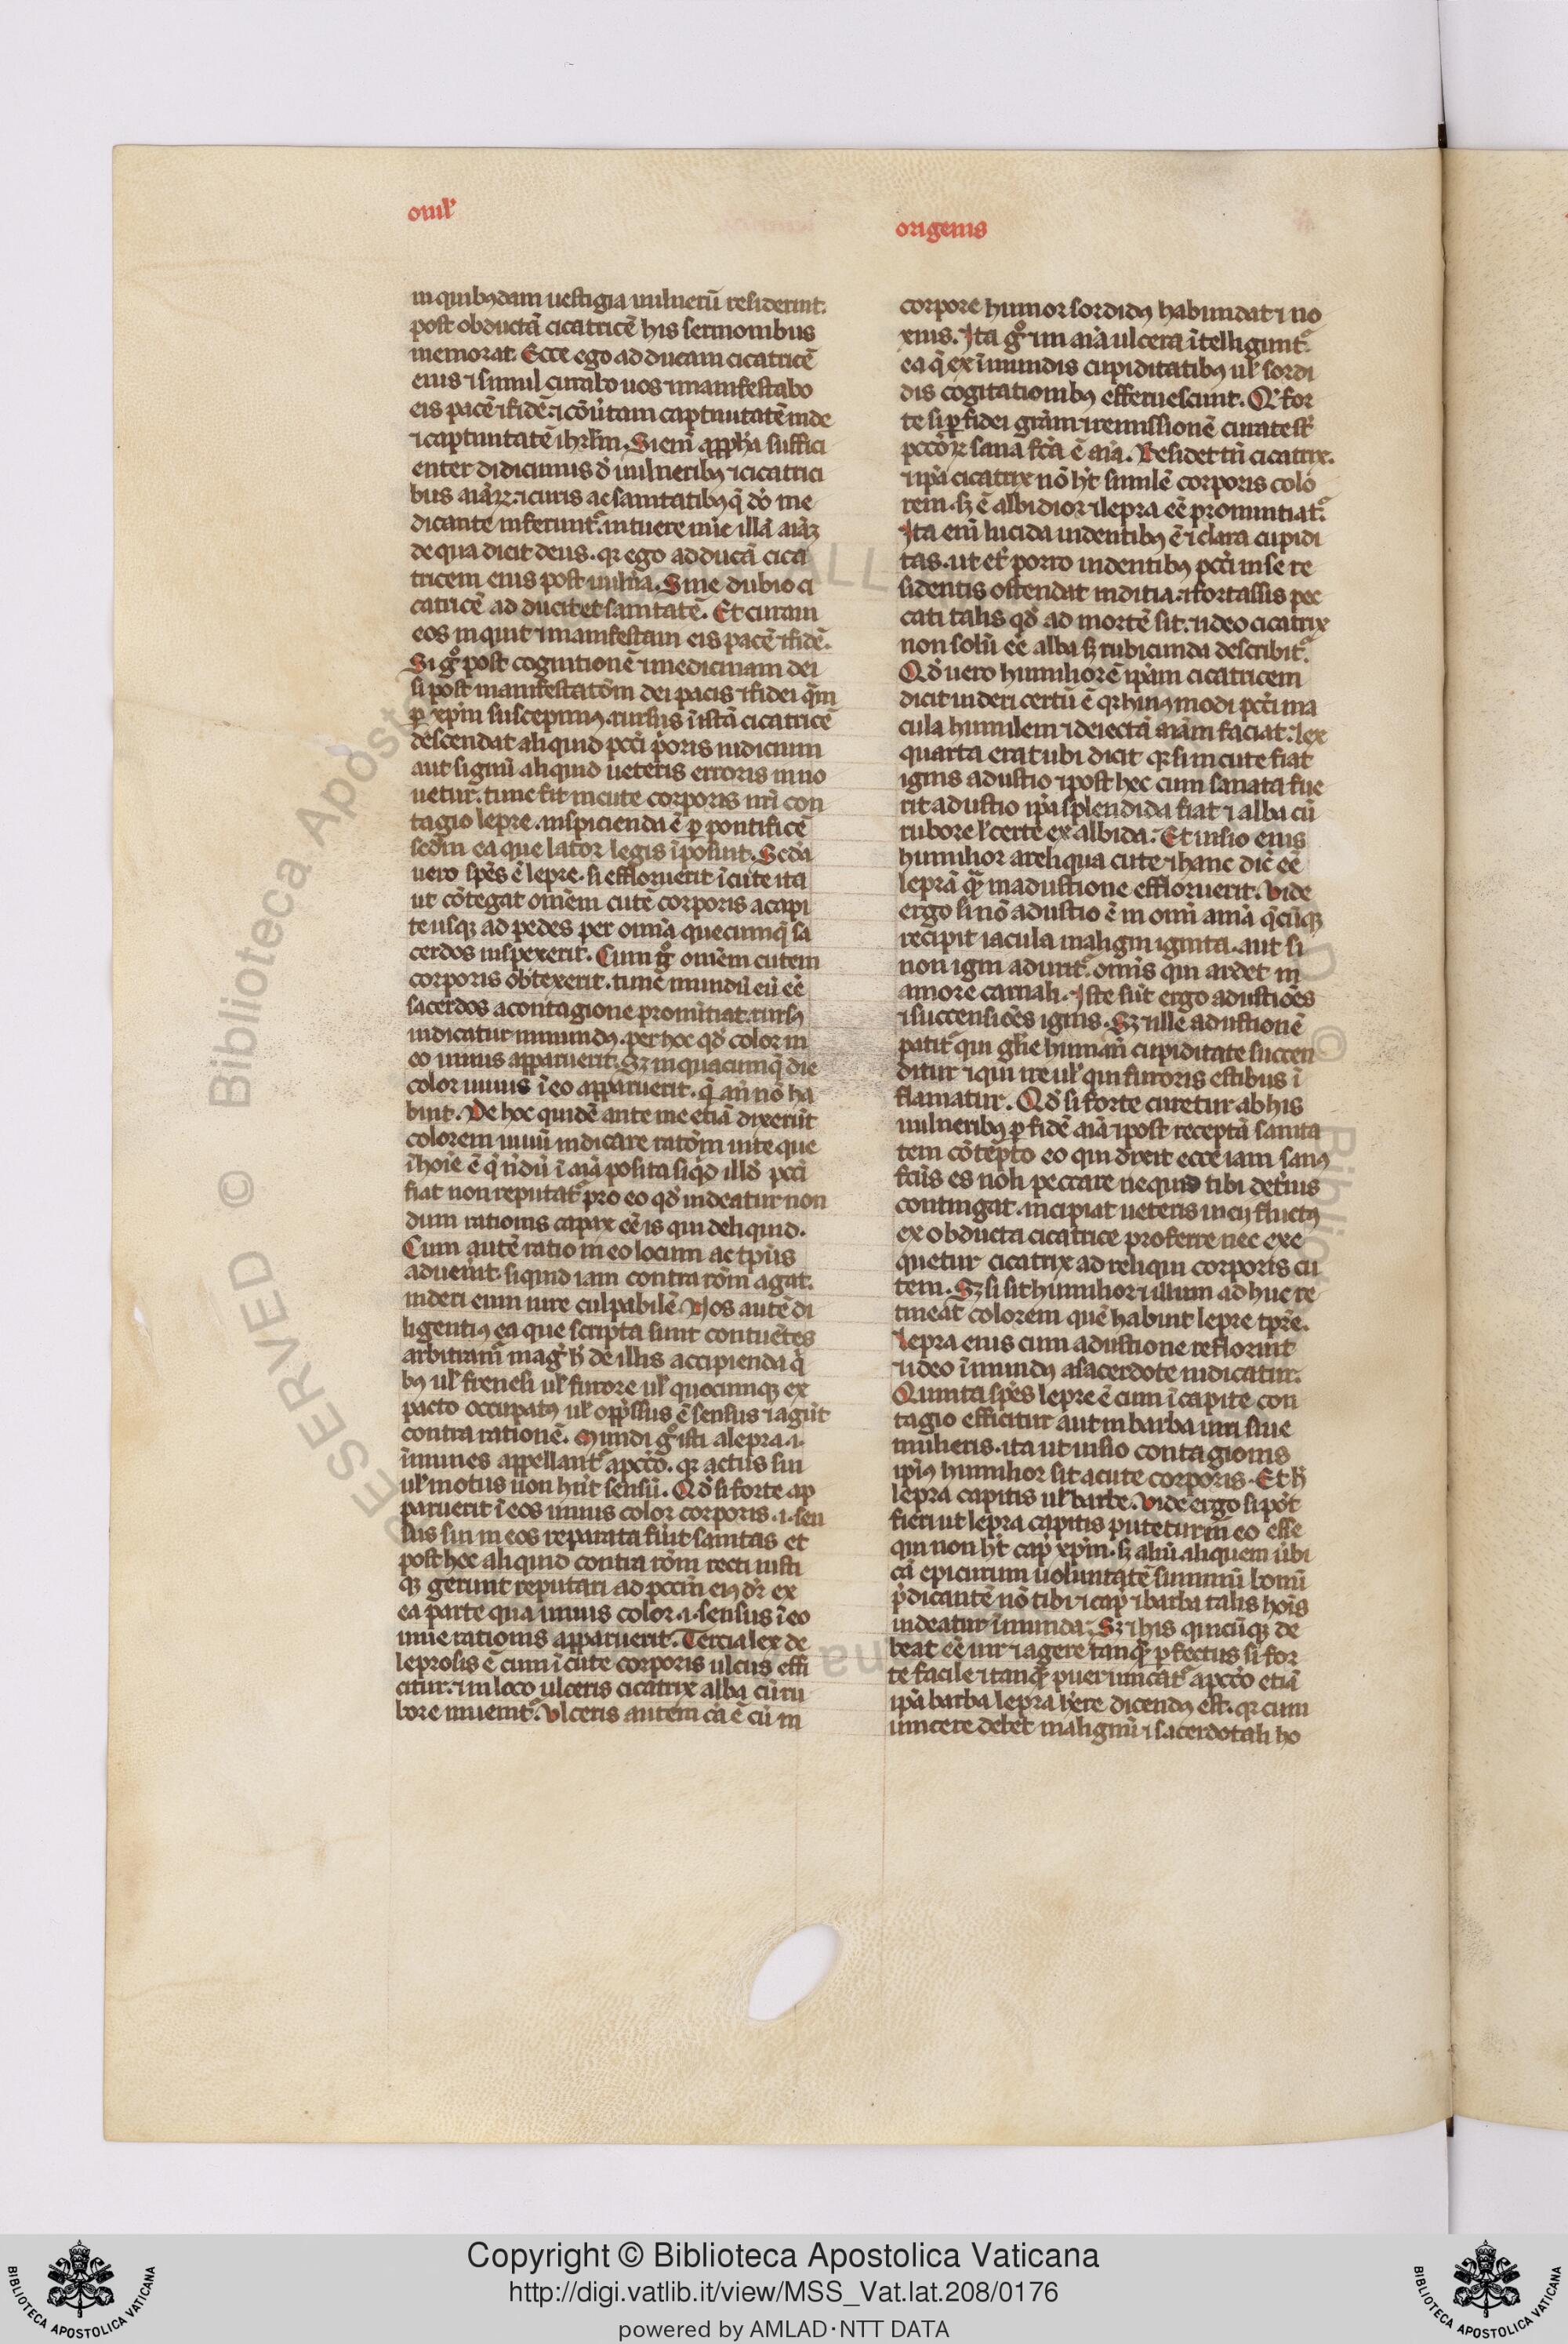 omĩ
origenis
in quibꝰdam uestigia uulnerũ resident.
post obductã cicatricẽ his sermonibus
memorat. Ecce ego adducam cicatricẽ
eius ⁊ simul curabo uos ⁊ manifestabo
eis pacẽ ⁊ fidẽ. ⁊ cõũtam captiuitatẽ iude
⁊ captiuitatẽ ihrl̃m. Si em̃ appħa suffici
enter didicimus d̾ uulneribꝰ ⁊ cicatrici
bus aĩaꝝ. ⁊ curis ac sanitatibꝰ q̃ dõ me
dicante inferunt᷑. intuere nũc illã aĩaꝫ
de qua dicit deus. qꝛ ego adducã cica
tricem eius post uulña. Sine dubio ci
catricẽ adducit et sanitatẽ. Et curam
eos inquit ⁊ manifestam eis pacẽ ⁊ fidẽ.
Si gͦ post cognitionẽ ⁊ medicinam dei
si post manifestatõm dei pacis ⁊ fidei q̃m
ꝑ xp̃m suscepimꝰ. rursus ĩ istã cicatricẽ
descendat aliquid pcc̃i p̾oris indicium
aut signũ aliquid ueteris erroris inno
uetur. tunc fit in cute corporis nr̃i con
tagio lepre. inspicienda ẽ ꝑ pontificẽ
sed'm ea que lator legis ĩposuit. Sed'a
uero sp̃es ẽ lepre. si effloruerit ĩ cute ita
ut cõtegat om̃em cutẽ corporis a capi
te usqꝫ ad pedes per om̃ia quecumq̃ sa
cerdos inspexerit. Cum gͦ om̃em cutem
corporis obtexerit. tunc mundũ eũ eẽ
sacerdos a contagione pronũtiat. rursꝰ
iudicatur inmundꝰ. per hoc qd̾ color in
eo uiuus apparuerit. Sꝫ in quacumq̃ die
color uiuus ĩ eo apparuerit. q̃ añ nõ ha
buit. De hoc quidẽ ante me etiã dixerũt
colorem uiuũ indicare ratõm uite que
ĩ hoĩe ẽ q̃ n̾dũ ĩ aĩa posita siq̾d illd̾ pcc̃i
fiat non reputat᷑ pro eo qd̾ uideatur non
dum rationis capax eẽ is qui deliquid.
Cum autẽ ratio in eo locum ac tp̃us
aduenit. siquid iam contra rõm agat.
uideri eum iure culpabilẽ. Nos autẽ di
ligentiꝰ ea que scripta sunt contuẽtes
arbitram᷑ mag̾ ħ de illis accipienda q̾
bꝰ ul̾ frenesi ul̾ furore ul̾ quocumqꝫ ex
pacto occupatꝰ ul̾ opp̃ssus ẽ sensus ⁊ agũt
contra rationẽ. Mundi gͦ isti a lepra .i.
ĩmunes appellant᷑ a pcc̃o. qꝛ actus sui
ul̾ motus non hñt sensũ. Qd̾ si forte ap
paruerit ĩ eos uiuus color corporis .i. sen
sus sui in eos reparata fũit sanitas et
post hec aliquid contra rõm recti iusti
qꝫ gerunt reputari ad pcc̃m eiꝰ d̾r ex
ea parte qua uiuus color .i. sensus ĩ eo
uiue rationis apparuerit. Tercia lex de
leprosis ẽ cum ĩ cute corporis ulcus effi
citur. ⁊ in loco ulceris cicatrix alba cũ ru
bore inuenit᷑. Ulceris autem cã ẽ cũ in
corpore humor sordidꝰ habundat ⁊ no
xius. Ita gͦ ⁊ in aĩa ulcera ĩtelligunt᷑.
ea q̃ ex ĩmundis cupiditatibꝰ ul̾ sordi
dis cogitationibꝰ efferuescunt. Q̾ for
te si ꝑ fidei grãm ⁊ remissionẽ curate st̃
pcc̃oꝝ sana fc̃a ẽ aĩa. Residet tñ cicatrix.
⁊ ip̃a cicatrix nõ ht̾ similẽ corporis colo
rem. sꝫ ẽ albidior ⁊ lepra eẽ pronuntiat᷑.
Ita em̃ lucida uidentibꝰ ẽ ⁊ clara cupidi
tas. ut et̾ porro uidentibꝰ pcc̃i in se re
sidentis ostendat inditia. ⁊ fortassis pec
cati talis qd̾ ad mortẽ sit. ⁊ ideo cicatrix
non solũ eẽ alba sꝫ rubicunda describit᷑.
Qd̾ uero humiliorẽ ip̃am cicatricem
dicit uideri certũ ẽ qꝛ huiꝰmodi pcc̃i ma
cula humilem ⁊ deiectã aĩam faciat. lex
quarta erat ubi dicit qꝛ si in cute fiat
ignis adustio ⁊ post hec cum sanata fue
rit adustio ip̃a splendida fiat ⁊ alba cũ
rubore l̾ certe exalbida. Et uisio eius
humilior a reliqua cute ⁊ hanc dic̃ eẽ
leprã qꝛ in adustione effloruerit. Vide
ergo si nõ adustio ẽ in om̃i aĩma q̃cũqꝫ
recipit iacula maligni ignita. aut si
non igni adurit᷑. om̃is qui ardet in
amore carnali. Iste sũt ergo adustiões
⁊ succensiões ignis. Sꝫ ⁊ ille adustionẽ
patit᷑ qui gl̃ie humañ cupiditate succen
ditur ⁊ qui ire ul̾ qui furoris estibus ĩ
flamatur. Qd̾ si forte curetur ab his
uulneribꝰ ꝑ fidẽ aĩa ⁊ post receptã sanita
tem cõtẽpto eo qui dixit ecce iam sanꝰ
fc̃us es noli peccare ne quid tibi det̾ius
contingat. incipiat ueteris incij fluctꝰ
ex obducta cicatrice proferre nec exe
quetur cicatrix ad reliqui corporis cu
tem. Sꝫ si sit humilior ⁊ illum adhuc re
tineat colorem quẽ habuit lepre tpr̃e.
Lepra eius cum adustione refloruit
⁊ ideo ĩmundꝰ a sacerdote iudicatur.
Quinta sp̃es lepre ẽ cum ĩ capite con
tagio efficitur aut in barba uiri siue
mulieris. ita ut uisio contagionis
ip̃iꝰ humilior sit a cute corporis. Et ħ
lepra capitis ul̾ barbe. Vide ergo si põt
fieri ut lepra capitis putetur in eo esse
qui non ht̾ cap̾ xp̃m. sꝫ aliũ aliquem ũbi
cã epicurum uoluntatẽ summũ bonũ
p̾dicantẽ nõ tibi ⁊ cap̾ ⁊ barba talis hoĩs
uideatur ĩmunda. Sꝫ ⁊ his quicũqꝫ de
beat eẽ uir ⁊ agere tanq̃ ꝑfectus si for
te facile ⁊ tanq̃ puer uincat᷑ a pcc̃o etiã
ip̃a barba lepra h̾ere dicendꝰ est. qꝛ cum
uincere debet malignũ ⁊ sacerdotali ho
Copyright © Biblioteca Apostolica Vaticana
http://digi.vatlib.it/view/MSS_Vat.lat.208/0176
powered by AMLAD·NTT DATA